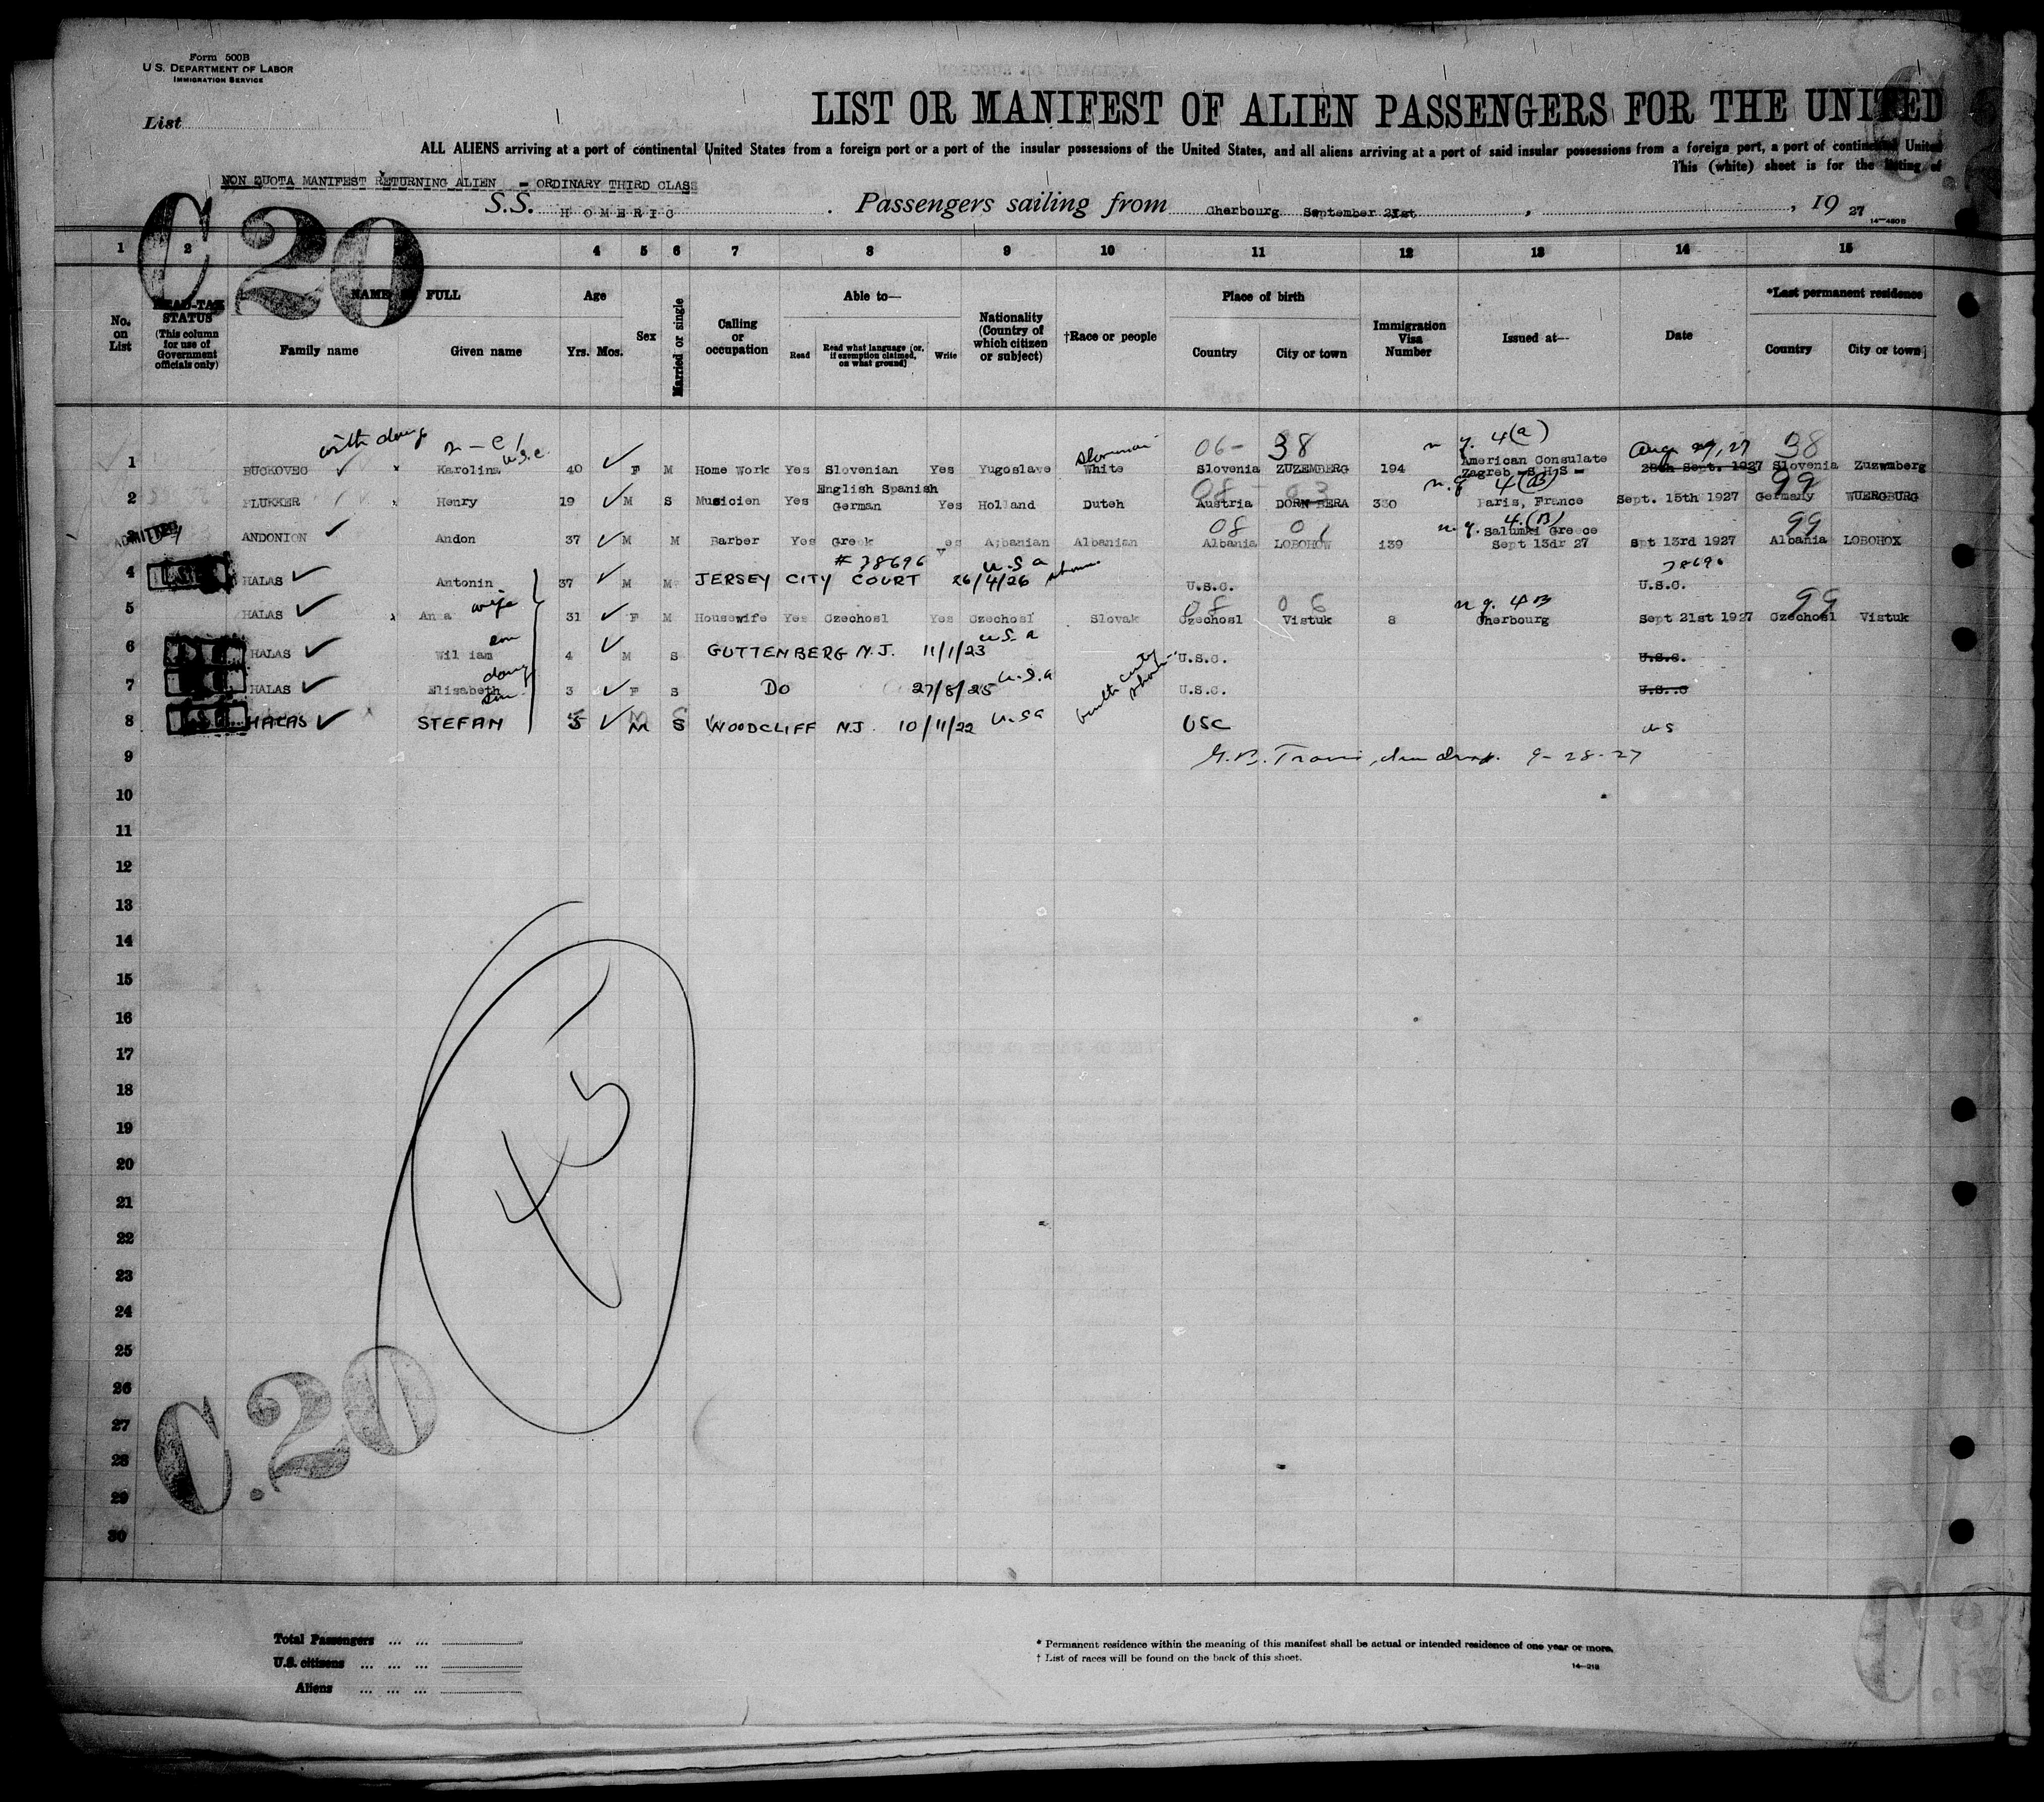 Form 500B
U.S. DEPARTMENT OF LABOR
IMMIGRATION SERVICE
List
LIST OR MANIFEST OF ALIEN PASSENGERS FOR THE UNITED
ALL ALIENS arriving at a port of continental United States from a foreign port or a port of the insular possessions of the United States, and all aliens arriving at a port of said insular possessions from a foreign port, a port of continental United
This (white) sheet is for the listing of
NON QUOTA MANIFEST RETURNING ALIEN - ORDINARY THIRD CLASS
S.S. HOMERIC. Passengers sailing from Cherbourg September 21st, , 19 27
14-480B
C20
1 2 4 5 6 7 8 9 10 11 12 13 14 15
No. on List
HEAD-TAX STATUS (This column for use of Government officials only)
NAME FULL
Family name Given name
Age Yrs. Mos.
Sex
Married or single
Calling or occupation
Able to—
Read Read what language (or, if exemption claimed, on what ground) Write
Nationality (Country of which citizen or subject)
†Race or people
Place of birth
Country City or town
Immigration Visa Number
Issued at—
Date
*Last permanent residence
Country City or town
with daug U.S.C. 06- 38 n q. 4(a) Aug 29, 27 38
1 BUCKOVEC Karolina 40 F M Home Work Yes Slovenian Yes Yugoslave White Slovenia ZUZEMBERG 194 American Consulate Zagreb -S H S- 28th Sept. 1927 Slovenia Zuzwmberg
08 n.q. 4(B) 99
2 Henry 19 M S Musicien Yes English Spanish German Yes Holland Dutch Austria DORN BERA 330 Paris, France Sept. 15th 1927 Germany WUERGBURG
ADMITTED 08 01 n.q. 4.(B) 99
3 ANDONION Andon 37 M M Barber Yes Greek es Albanian Albanian Albania LOBOHOW 139 Saluniki Greece Sept 13dr 27 spt 13rd 1927 Albania LOBOHOX
#78696 U.S a 78696
4 HALAS Antonin 37 M M JERSEY CITY COURT 26/4/26 U.S.C. U.S.C.
wife 08 06 n q. 4B 99
5 HALAS An a 31 F M Housewife Yes Czechosl Yes Czechosl Slovak Czechosl Vistuk 8 Cherbourg Sept 21st 1927 Czechosl Vistuk
son U.S.a
6 HALAS Wil iam 4 M S GUTTENBERG N.J. 11/1/23 U.S.C. U.S.C.
daug
7 HALAS Elisabeth 3 F S DO 27/8/25 U.S.a U.S.C. U.S..C
son
8 HALAS STEFAN 5 M S WOODCLIFF N.J. 10/11/22 U.S.a USC US
9 9-28-27
10
11
12
13
14
15
16
17
18
19
20
21
22
23
24
25
26
27
28
29
30
45
C.20
Total Passengers ... ...
U.S. citizens ... ... ...
Aliens ... ... ...
* Permanent residence within the meaning of this manifest shall be actual or intended residence of one year or more.
† List of races will be found on the back of this sheet.
14-218